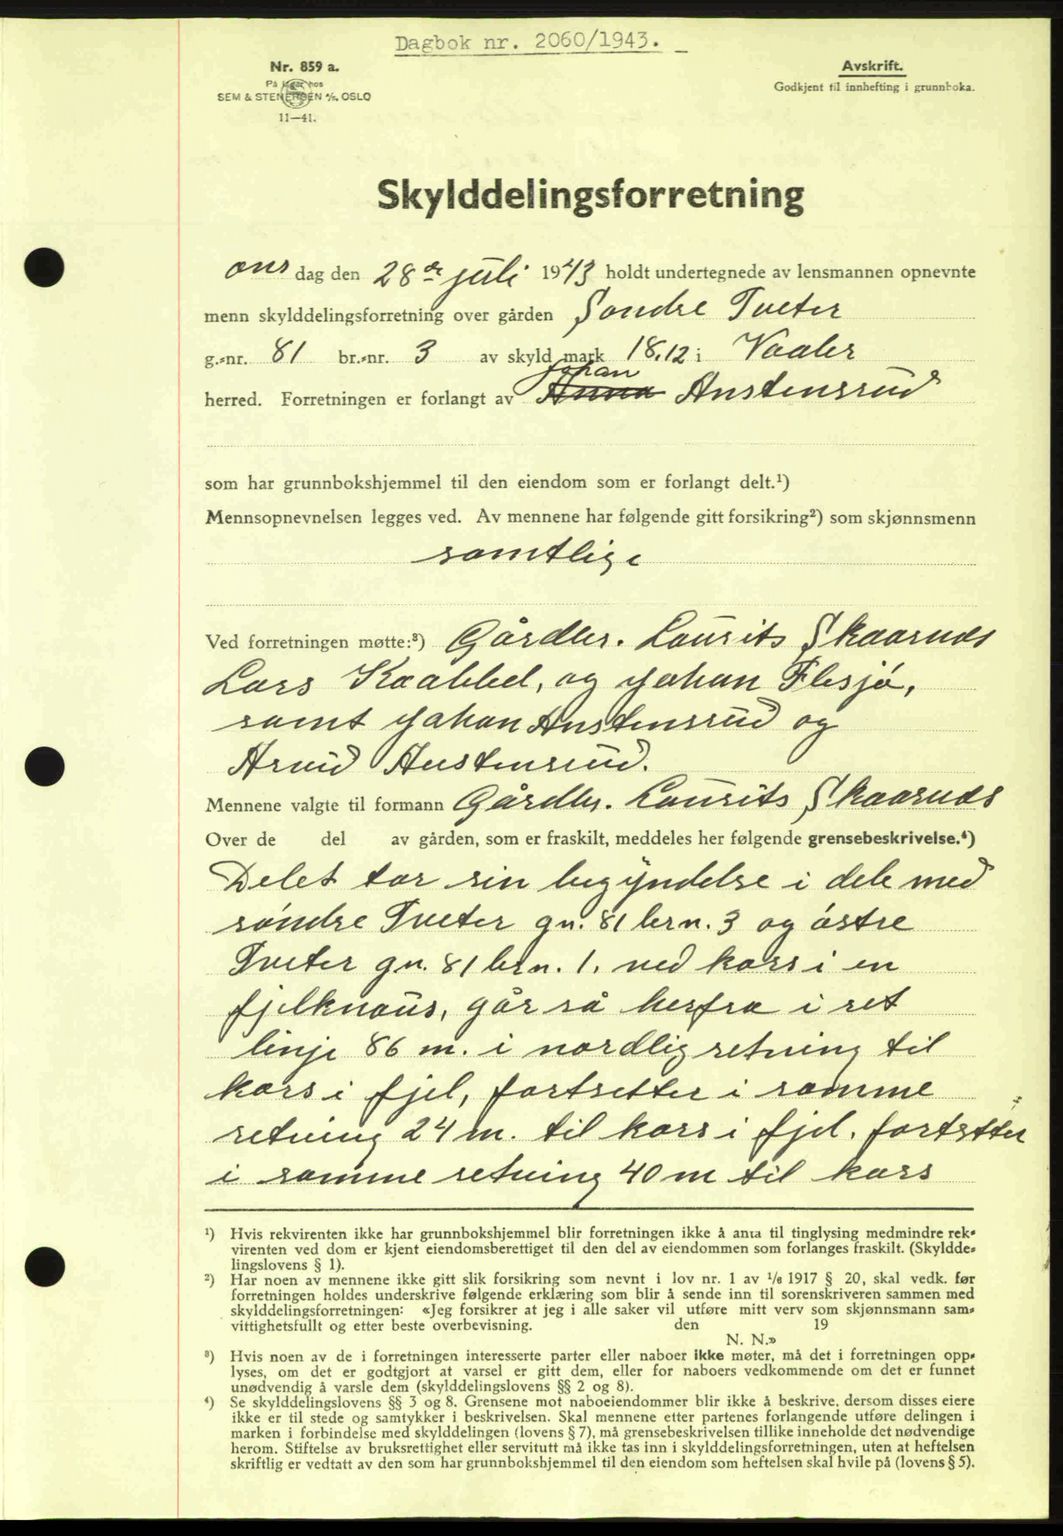 Dagbok nr. 2060/1943.
Nr. 859 a.
På lager hos
SEM & STENERSEN A/S, OSLO
11—41.
Avskrift.
Godkjent til innhefting i grunnboka.
Skylddelingsforretning
ons dag den 28de juli 1943 holdt undertegnede av lensmannen opnevnte
menn skylddelingsforretning over gården Søndre Tveter
g.-nr. 81 br.-nr. 3 av skyld mark 18,12 i Vaaler
Johan
herred. Forretningen er forlangt av Anna Austensrud
som har grunnbokshjemmel til den eiendom som er forlangt delt.¹)
Mennsopnevnelsen legges ved. Av mennene har følgende gitt forsikring²) som skjønnsmenn
samtlige
Ved forretningen møtte:³) Gårdbr. Laurits Skaaruds
Lars Kaabbel, og Johan Flesjø,
samt Johan Austensrud og
Arvid Austensrud.
Mennene valgte til formann Gårdbr. Laurits Skaaruds
Over de del av gården, som er fraskilt, meddeles her følgende grensebeskrivelse.⁴)
Delet tar sin begyndelse i dele med
søndre Tveter gn. 81 brn. 3 og østre
Tveter gn. 81 brn. 1. ved kors i en
fjelknaus, går så herfra i ret
linje 86 m. i nordlig retning til
kors i fjel, fortsetter i samme
retning 24 m. til kors i fjel, fortsetter
i samme retning 40 m til kors
¹) Hvis rekvirenten ikke har grunnbokshjemmel blir forretningen ikke å anta til tinglysing medmindre rek-
virenten ved dom er kjent eiendomsberettiget til den del av eiendommen som forlanges fraskilt. (Skyldde-
lingslovens § 1).
²) Har noen av mennene ikke gitt slik forsikring som nevnt i lov nr. 1 av 1/6 1917 § 20, skal vedk. før
forretningen holdes underskrive følgende erklæring som blir å sende inn til sorenskriveren sammen med
skylddelingsforretningen: «Jeg forsikrer at jeg i alle saker vil utføre mitt verv som skjønnsmann sam-
vittighetsfullt og etter beste overbevisning. den 19
N. N.»
³) Hvis noen av de i forretningen interesserte parter eller naboer ikke møter, må det i forretningen opp-
lyses, om det er godtgjort at varsel er gitt dem, eller for naboers vedkommende om det er funnet
unødvendig å varsle dem (skylddelingslovens §§ 2 og 8).
⁴) Se skylddelingslovens §§ 3 og 8. Grensene mot naboeiendommer blir ikke å beskrive, dersom disses eiere
ikke er til stede og samtykker i beskrivelsen. Skal mennene etter partenes forlangende utføre delingen i
marken i forbindelse med skylddelingen (lovens § 7), må grensebeskrivelsen tillike inneholde det nødvendige
herom. Stiftelse av bruksrettighet eller servitutt må ikke tas inn i skylddelingsforretningen, uten at heftelsen
skriftlig er vedtatt av den som har grunnbokshjemmel til den eiendom som heftelsen skal hvile på (lovens § 5).